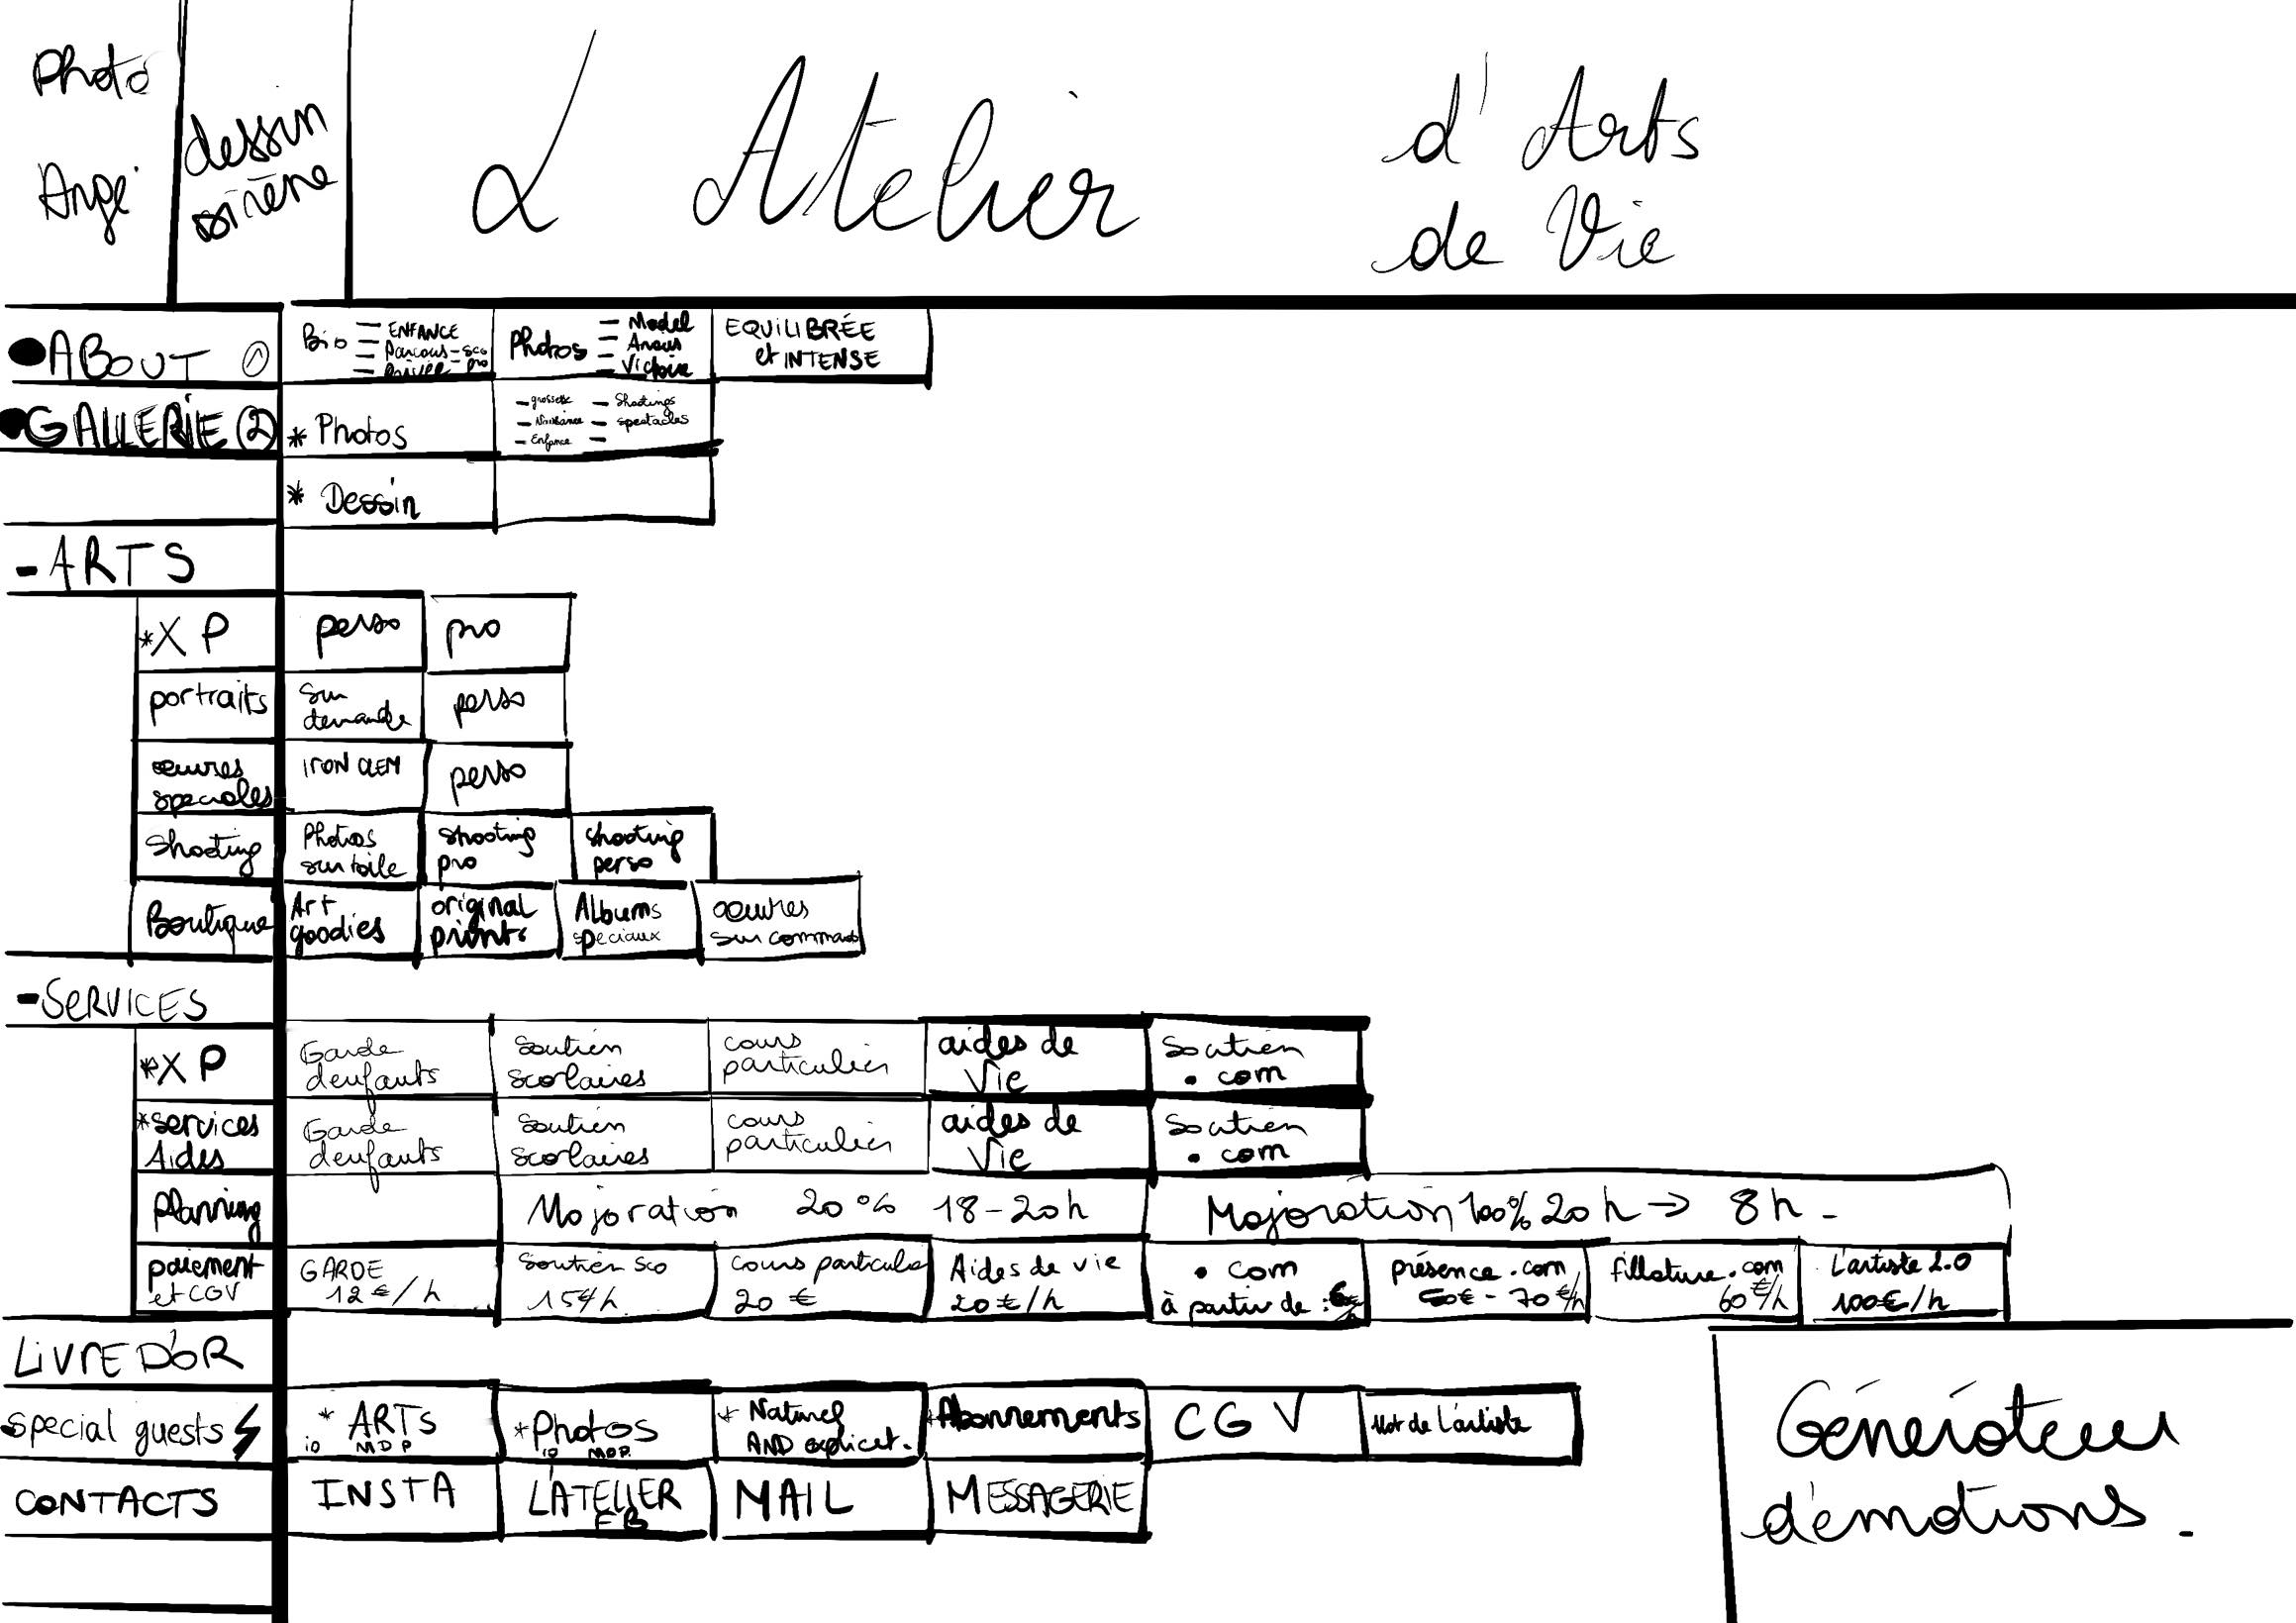 Photo
Ange
dessin
sirène
L'Atelier
d'Arts
de Vie
ABOUT ①
Bio
- ENFANCE
- Parcours-sco
- Privée - pro
Photos
- Model
- Anaïs
- Victoire
EQUILIBRÉE
et INTENSE
GALLERIE ②
* Photos
- grossesse - Shootings
- Naissance - spectacles
- Enfance -
* Dessin
- ARTS
*XP
perso
pro
portraits
Sur
demande
perso
œuvres
speciales
IRON CLEM
perso
Shooting
Photos
sur toile
shooting
pro
shooting
perso
Boutique
Art
goodies
original
prints
Albums
speciaux
œuvres
sur command
- SERVICES
*XP
Garde
denfants
Soutien
scolaires
cours
particulier
aides de
Vie
Soutien
. com
*services
Aides
Garde
denfants
Soutien
scolaires
cours
particulier
aides de
Vie
Soutien
. com
planning
Majoration 20% 18-20h
Majoration 100% 20h → 8h -
paiement
et CGV
GARDE
12€/h
Soutien sco
15€/h
Cours particulie
20€
Aides de vie
20€/h
. com
à partir de :
présence.com
- 70€/h
fillature.com
60€/h
L'artiste 2.0
100€/h
LIVRE D'OR
special guests
* ARTS
ID MDP
* Photos
ID MDP
* Naturel
AND explicit.
Abonnements
CGV
Mot de L'artiste
CONTACTS
INSTA
L'ATELIER
FB
MAIL
MESSAGERIE
Générateur
d'émotions.